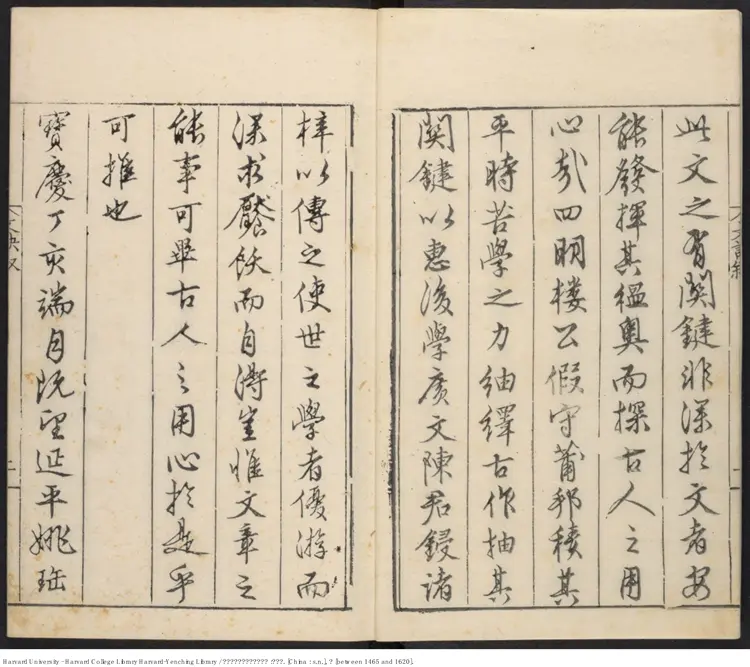 此文之有關鍵非深於文者安
能發揮其緼奧而探古人之用
心哉四明樓公假守莆邦積其
平時苦學之力紬繹古作抽其
關鍵以惠後學廣文陳君鋟諸
梓以傳之使世之學者優游而
深求饜飫而自得豈惟文章之
能事可畢古人之用心於是乎
可推也
寶慶丁亥端月既望延平姚珤
Harvard University - Harvard College Library Harvard-Yenching Library / ???????????? :???. [China : s.n.], ? [between 1465 and 1620].